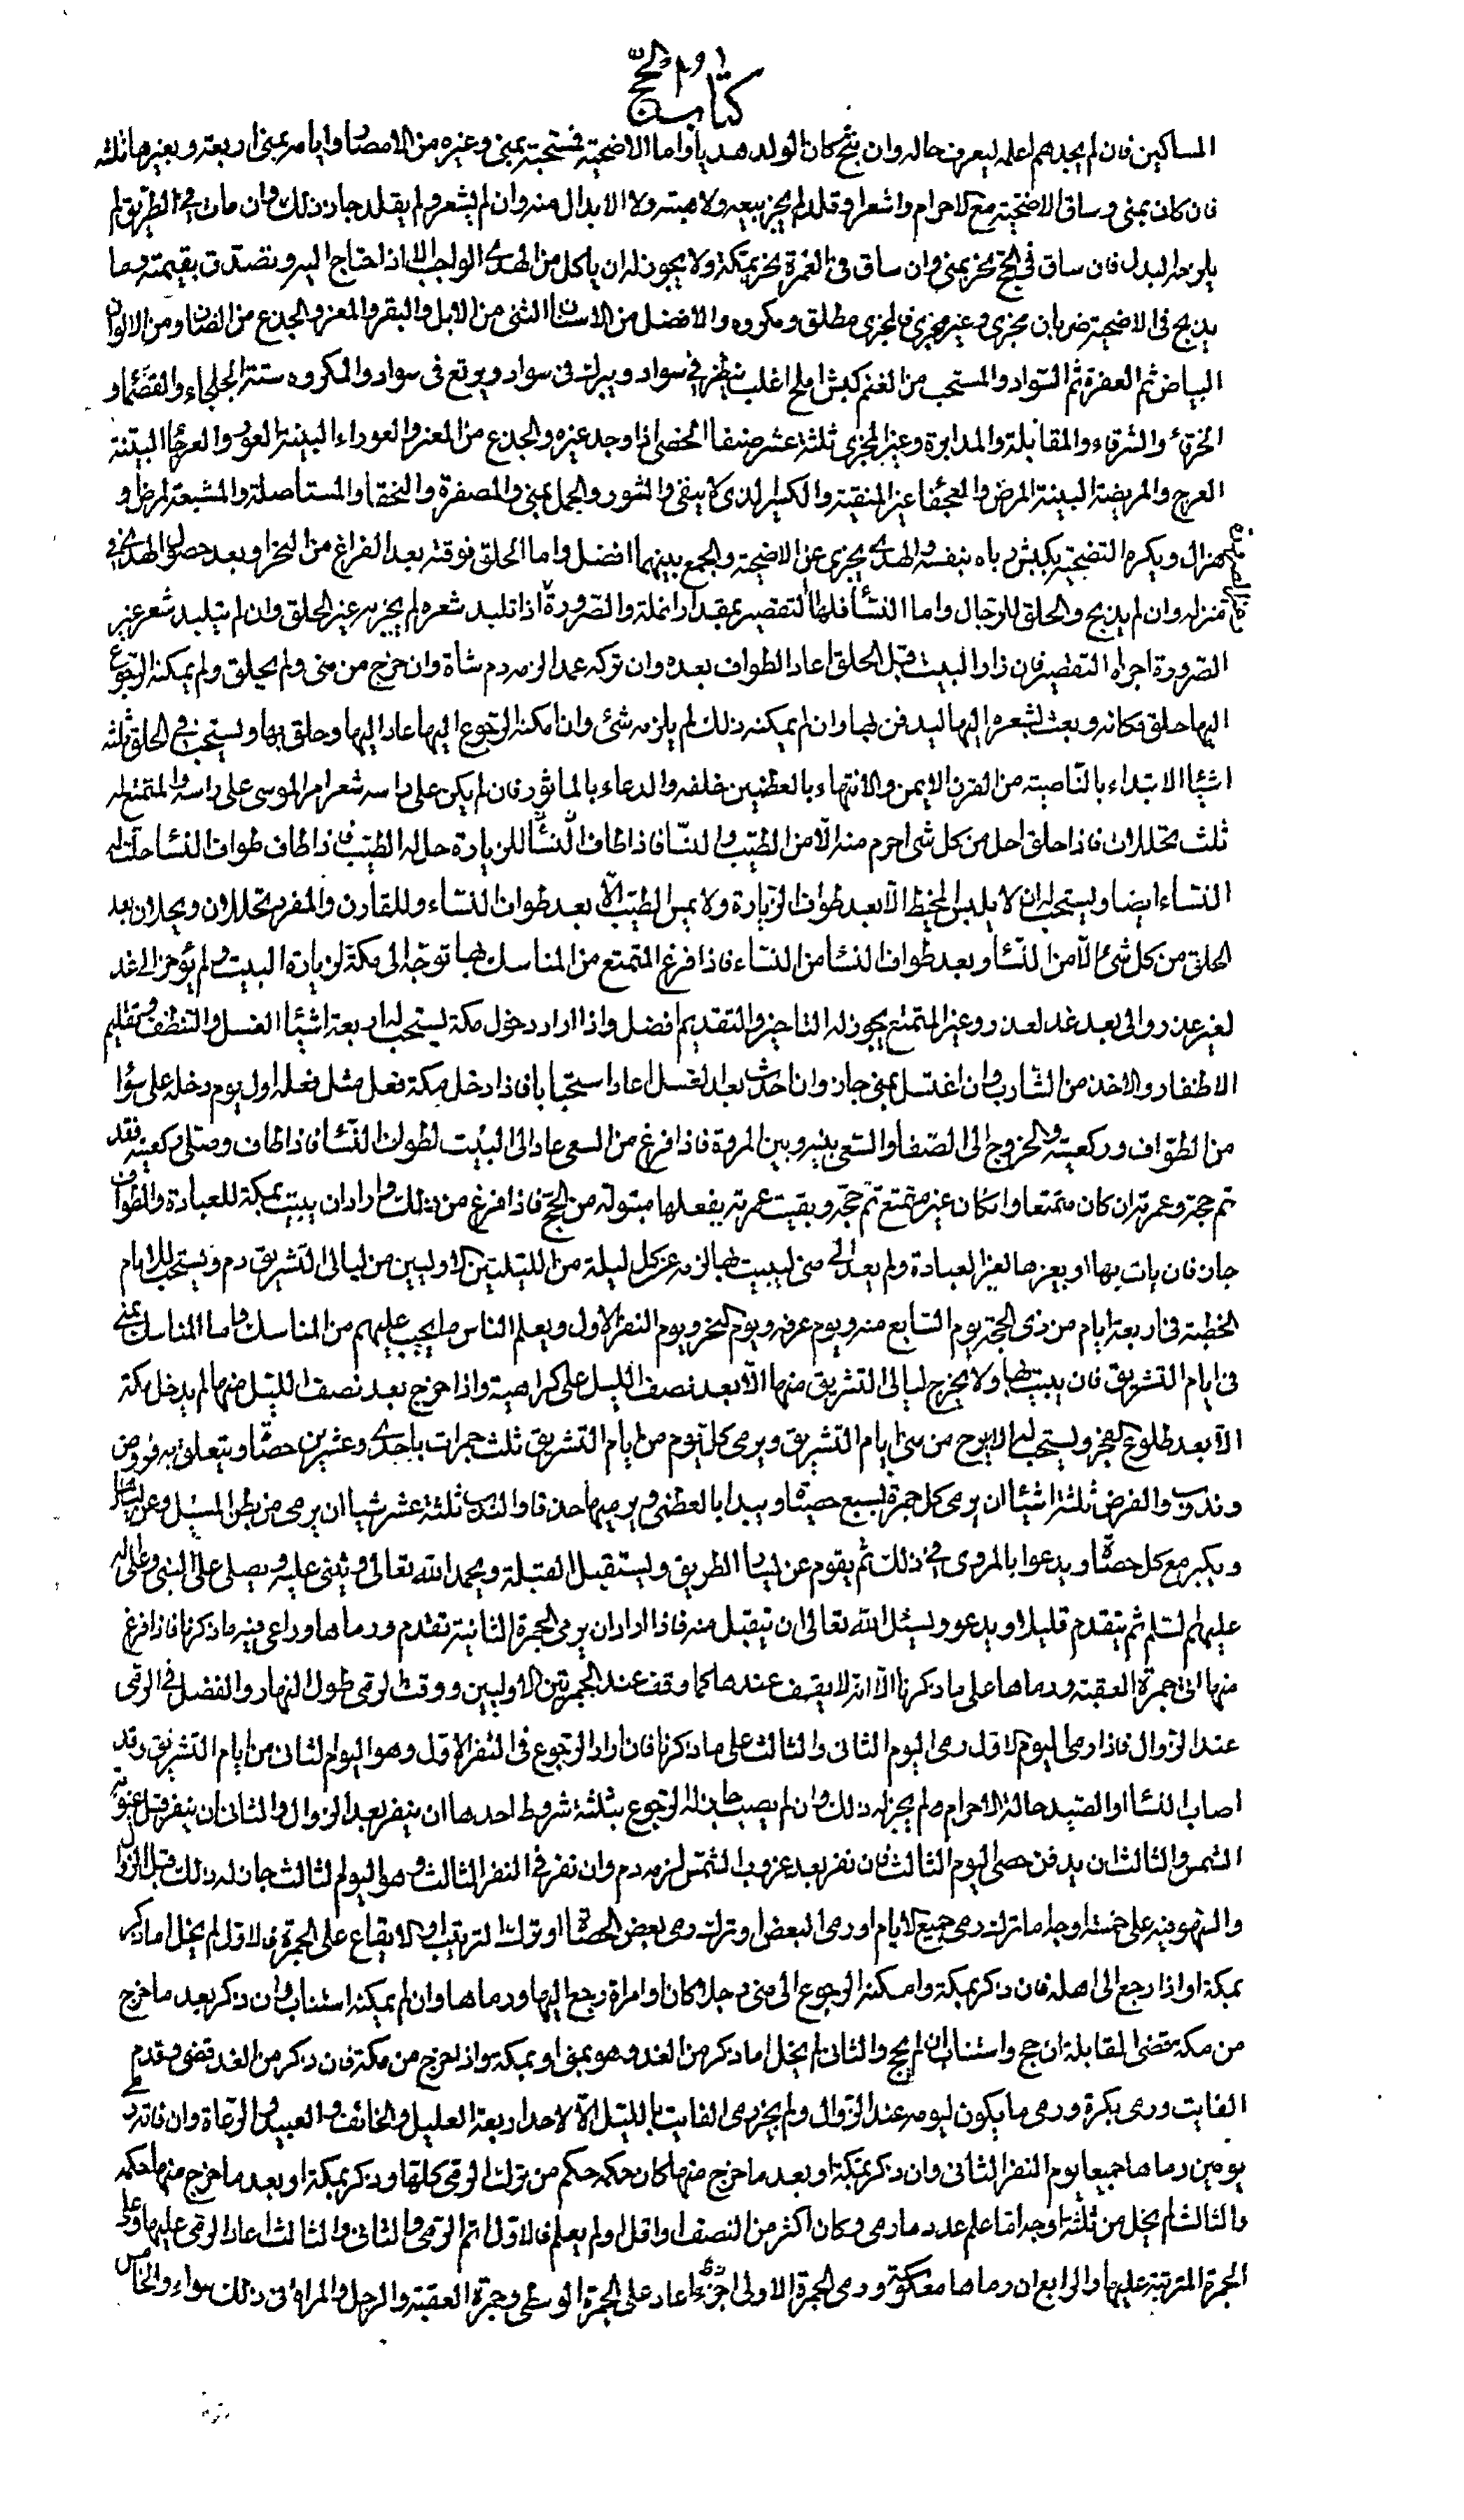 كتاب الحج
المساكين فان لم يجدهم اعلمه ليعرف حاله وان نتج كان الولد هديا واما الاضحية فمستحبة بمنى وغيره من الامصار وايامه بمنى اربعة وبغيرها ثلثة
فان كان بمنى وساق الاضحية مع الاحرام واشعر او قلد لم يجز بيعه ولا هبته ولا الابدال منه وان لم يشعر ولم يقلد جاز ذلك وان مات في الطريق لم
يلزمه البدل فان ساق في الحج نحر بمنى وان ساق في العمرة نحر بمكة ولا يجوز له ان ياكل من الهدى الواجب الا اذا احتاج اليه وتصدق بقيمته وما
يذبح في الاضحية ضربان مجزى وغير مجزى فالمجزى مطلق ومكروه والافضل من الاسنان الثنى من الابل والبقر والمعز والجذع من الضان ومن الالوان
البياض ثم العفرة ثم السواد والمستحب من الغنم كبش املح اغلب ينظر في سواد ويبرك في سواد ويرتع في سواد والمكروه ستة الجلحاء والقصماء و
الخرقاء والشرقاء والمقابلة والمدابرة وغير المجزى ثلثة عشر صنفا الخصى اذا وجد غيره والجذع من المعز والعوراء البينة العور والعرجاء البينة
العرج والمريضة البينة المرض والعجفاء غير المنقية والكسير الذى لا ينقى والثور والجمل بمنى والمصفرة والبخقاء والمستاصلة والمشيعة لمرض و
هزال ويكره التضحية بكبش رباه بنفسه والهدى يجزى عن الاضحية والجمع بينهما افضل واما الحلق فوقته بعد الفراغ من النحر او بعد حصول الهدى في
منزله وان لم يذبح والحلق للرجال واما النساء فلها التقصير بمقدار انملة والصرورة اذا تلبد شعره لم يجزه غير الحلق وان لم يتلبد شعر غير
الصرورة اجزاه التقصير فان زار البيت قبل الحلق اعاد الطواف بعده وان تركه عمدا لزمه دم شاة وان خرج من منى ولم يحلق ولم يمكنه الرجوع
اليها حلق مكانه وبعث بشعره اليها ليدفن بها وان لم يمكنه ذلك لم يلزمه شئ وان امكنه الرجوع اليها عاد اليها وحلق بها ويستحب في الحلق ثلثة
اشياء الابتداء بالناصية من القرن الايمن والانتهاء بالعظمين خلفه والدعاء بالماثور فان لم يكن على راسه شعر امر الموسى على راسه والمتمتع له
ثلث تحللات فاذا حلق احل من كل شئ احرم منه الا من الطيب والنساء فاذا طاف للزيارة حل له الطيب فاذا طاف طواف النساء حلت له
النساء ايضا ويستحب له ان لا يلبس المخيط الا بعد طواف الزيارة ولا يمس الطيب الا بعد طواف النساء وللقارن والمفرد تحللان ويحلان بعد
الحلق من كل شئ الا من النساء وبعد طواف النساء من النساء فاذا فرغ المتمتع من المناسك بها توجه الى مكة لزيارة البيت ولم يؤخر الى غد
لغير عذر والى بعد غد لعذر وغير المتمتع يجوز له التاخير والتقديم افضل واذا اراد دخول مكة يستحب له اربعة اشياء الغسل والتنظف وتقليم
الاظفار والاخذ من الشارب وان اغتسل بمنى جاز وان احدث بعد الغسل اعاد استحبابا فاذا دخل مكة فعل مثل فعله اول يوم دخله على سواء
من الطواف وركعتيه والخروج الى الصفا والسعى بينه وبين المروة فاذا فرغ من السعى عاد الى البيت لطواف النساء فاذا طاف وصلى ركعتيه فقد
تم حجه وعمرته ان كان متمتعا وان كان غير متمتع تم حجه وبقيت عمرته يفعلها مبتولة من الحج فاذا فرغ من ذلك واراد ان يبيت بمكة للعبادة والطواف
جاز فان بات بها او بغيرها لغير العبادة ولم يعد الى منى ليبيت بها لزمه عن كل ليلة من الليلتين الاوليين من ليالى التشريق دم ويستحب للامام
الخطبة في اربعة ايام من ذى الحجة يوم السابع منه ويوم عرفة ويوم النحر ويوم النفر الاول ويعلم الناس ما يجب عليهم من المناسك واما المناسك بمنى
في ايام التشريق فان يبيت بها ولا يخرج ليالى التشريق منها الا بعد نصف الليل على كراهية واذا خرج بعد نصف الليل منها لم يدخل مكة
الا بعد طلوع الفجر ويستحب له ان لا يبرح من منى ايام التشريق ويرمى كل يوم من ايام التشريق ثلث جمرات باحدى وعشرين حصاة ويتعلق به فروض
وندب والفرض ثلثة اشياء ان يرمى كل جمرة بسبع حصيات ويبدا بالعظمى ويرميها حذفا والندب ثلثة عشر شيئا ان يرمى من بطن المسيل وعن يسارها
ويكبر مع كل حصاة ويدعوا بالمروى في ذلك ثم يقوم عن يسار الطريق ويستقبل القبلة ويحمد الله تعالى ويثنى عليه ويصلى على النبى وعلى اله
عليهم السلم ثم يتقدم قليلا ويدعو ويسئل الله تعالى ان يتقبل منه فاذا اراد ان يرمى الجمرة الثانية تقدم ورماها وراعى فيه ما ذكرنا فاذا فرغ
منها اتى جمرة العقبة ورماها على ما ذكرنا الا انه لا يقف عندها كما وقف عند الجمرتين الاوليين ووقت الرمى طول النهار والفضل في الرمى
عند الزوال فاذا رمى اليوم الاول رمى اليوم الثانى والثالث على ما ذكرنا فان اراد الرجوع في النفر الاول وهو اليوم الثانى من ايام التشريق وقد
اصاب النساء او الصيد حالة الاحرام لم يجز له ذلك وان لم يصب جاز له الرجوع بثلثة شروط احدها ان ينفر بعد الزوال والثانى ان ينفر قبل غروب
الشمس والثالث ان يدفن حصى اليوم الثالث فان نفر بعد غروب الشمس لزمه دم وان نفر في النفر الثالث وهو اليوم الثالث جاز له ذلك قبل الزوال
والسهو فيه على خمسة اوجه اما ترك رمى جميع الايام او رمى البعض او ترك رمى بعض الحصاة او ترك الترتيب او الايقاع على الجمرة فالاول لم يخل اما ذكر
بمكة او اذا رجع الى اهله فان ذكر بمكة وامكنه الرجوع الى منى رجلا كان او امراة رجع اليها ورماها وان لم يمكنه استناب وان ذكر بعد ما خرج
من مكة قضى لمقابلة ان حج واستناب ان لم يحج والثانى لم يخل اما ذكر من الغد وهو بمنى او بمكة واذا خرج من مكة فان ذكر من الغد قضى وقدم
الفايت ورمى بكرة ورمى ما يكون ليومه عند الزوال ولم يجز رمى الفايت بالليل الا لاحد اربعة العليل والخائف والعبيد والرعاة وان فاته رمى
يومين رماها جميعا يوم النفر الثانى وان ذكر بمكة او بعد ما خرج منها كان حكمه حكم من ترك الرمى كلها وذكر بمكة او بعد ما خرج منها حكمه
والثالث لم يخل من ثلثة اوجه اما علم عدد ما رمى وكان اكثر من النصف او اقل او لم يعلم فالاول اتم الرمى والثانى والثالث اعاد الرمى عليها وعلى
الجمرة المترتبة عليها والرابع ان رماها معكوسة ورمى الجمرة الاولى اجزءه اعاد على الجمرة الوسطى وجمرة العقبة والرجل والمراة في ذلك سواء والخامس